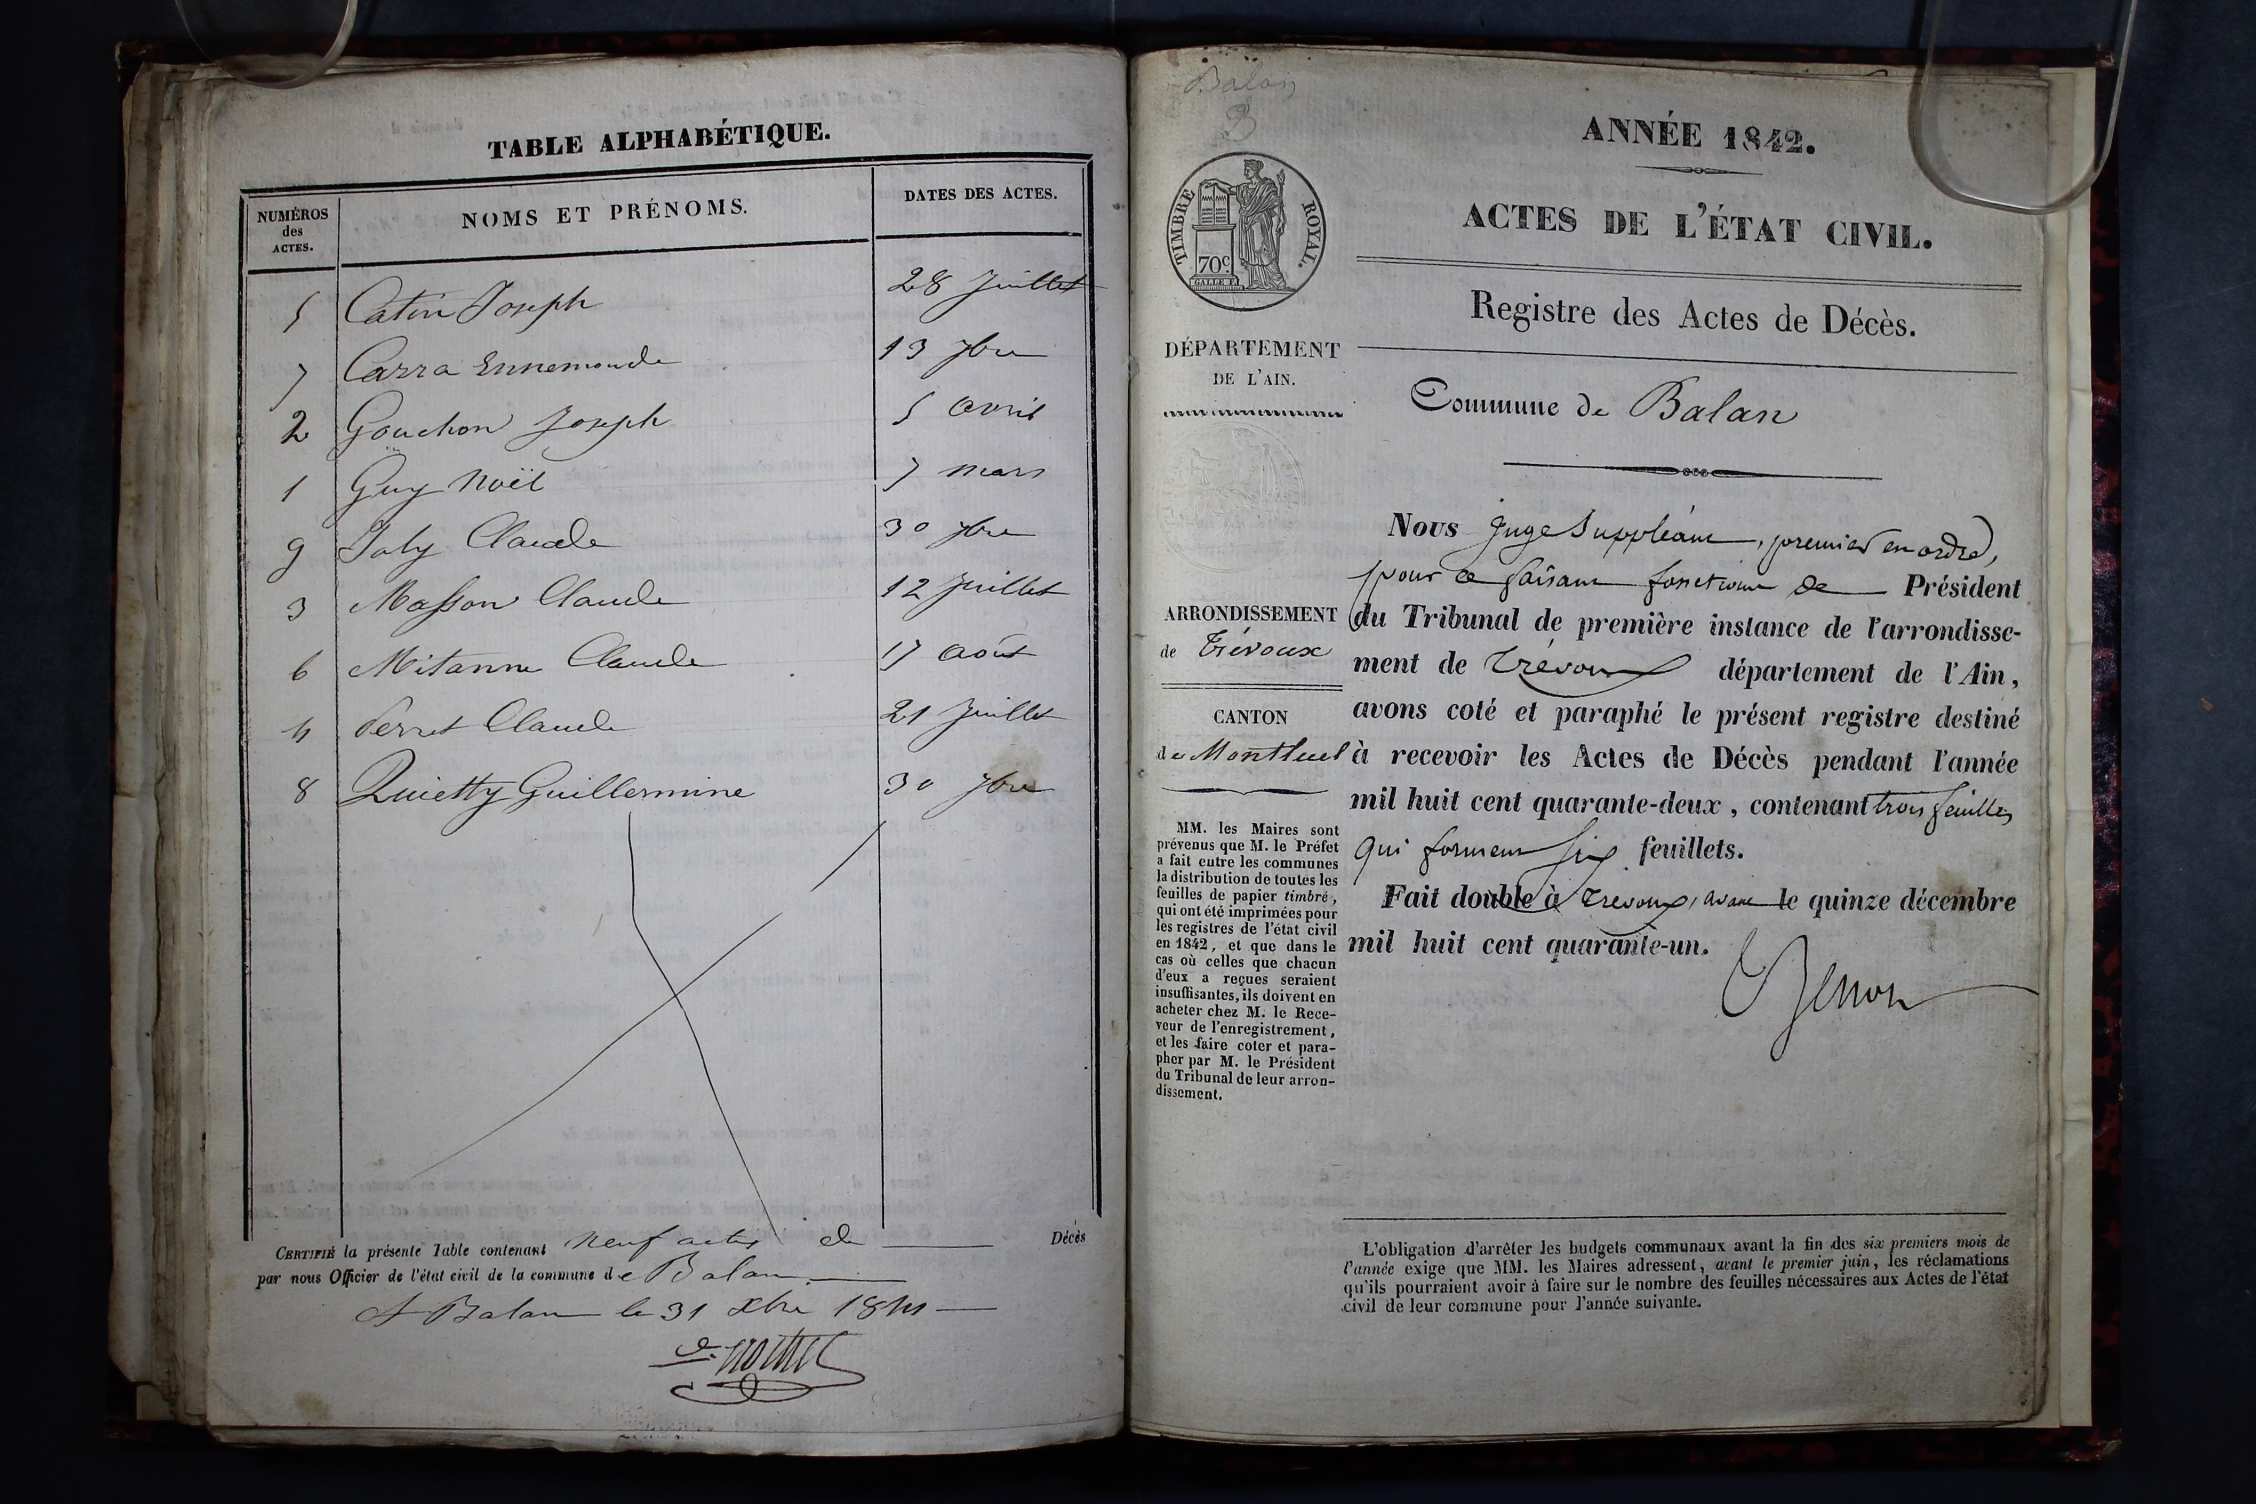 TABLE ALPHABÉTIQUE.
NUMÉROS des ACTES. NOMS ET PRÉNOMS. DATES DES ACTES.
5 Catin Joseph 28 Juillet
7 Carra Ennemonde 13 7bre
2 Gouchon Joseph 5 avril
1 Guy Noël 7 mars
9 Joly Claude 30 7bre
3 Masson Claude 12 Juillet
6 Mitanne Claude 17 août
4 Perret Claude 21 Juillet
8 Quietty Guillermine 30 7bre
CERTIFIÉ la présente Table contenant neuf actes de Décès
par nous Officier de l'état civil de la commune de Balan
A Balan le 31 Xbre 1841
Balan
ANNÉE 1842.
ACTES DE L'ÉTAT CIVIL.
TIMBRE ROYAL.
70c.
GALLE F.
Registre des Actes de Décès.
DÉPARTEMENT
DE L'AIN.
Commune de Balan
ARRONDISSEMENT
de Trévoux
CANTON
de Montluel
MM. les Maires sont
prévenus que M. le Préfet
a fait entre les communes
la distribution de toutes les
feuilles de papier timbré,
qui ont été imprimées pour
les registres de l'état civil
en 1842, et que dans le
cas où celles que chacun
d'eux a reçues seraient
insuffisantes, ils doivent en
acheter chez M. le Rece-
veur de l'enregistrement,
et les faire coter et para-
pher par M. le Président
du Tribunal de leur arron-
dissement.
Nous Juge Suppléant, premier en ordre,
pour ce faisant fonctions de Président
du Tribunal de première instance de l'arrondisse-
ment de Trévoux département de l'Ain,
avons coté et paraphé le présent registre destiné
à recevoir les Actes de Décès pendant l'année
mil huit cent quarante-deux, contenant trois feuilles
qui forment six feuillets.
Fait double à Trévoux, avant le quinze décembre
mil huit cent quarante-un.
L'obligation d'arrêter les budgets communaux avant la fin des six premiers mois de
l'année exige que MM. les Maires adressent, avant le premier juin, les réclamations
qu'ils pourraient avoir à faire sur le nombre des feuilles nécessaires aux Actes de l'état
civil de leur commune pour l'année suivante.